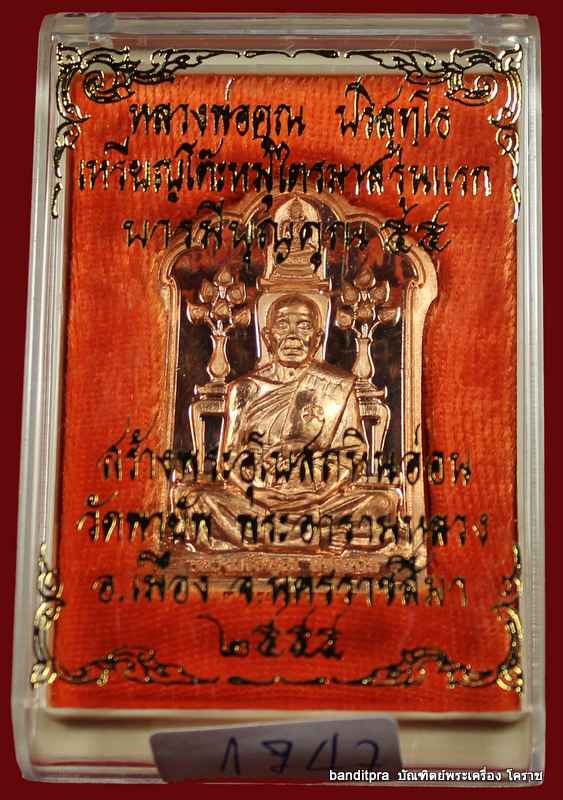 หลวงพ่อคูณ ปริสุทฺโธ
เหรียญโต๊ะหมู่ไตรมาสรุ่นแรก
บารมีบุญคุณ ๕๕
สร้างพระอุโบสถหินอ่อน
วัดพายัพ พระอารามหลวง
อ.เมือง จ.นครราชสีมา
๒๕๕๕
1947
banditpra บัณฑิตย์พระเครื่อง โคราช